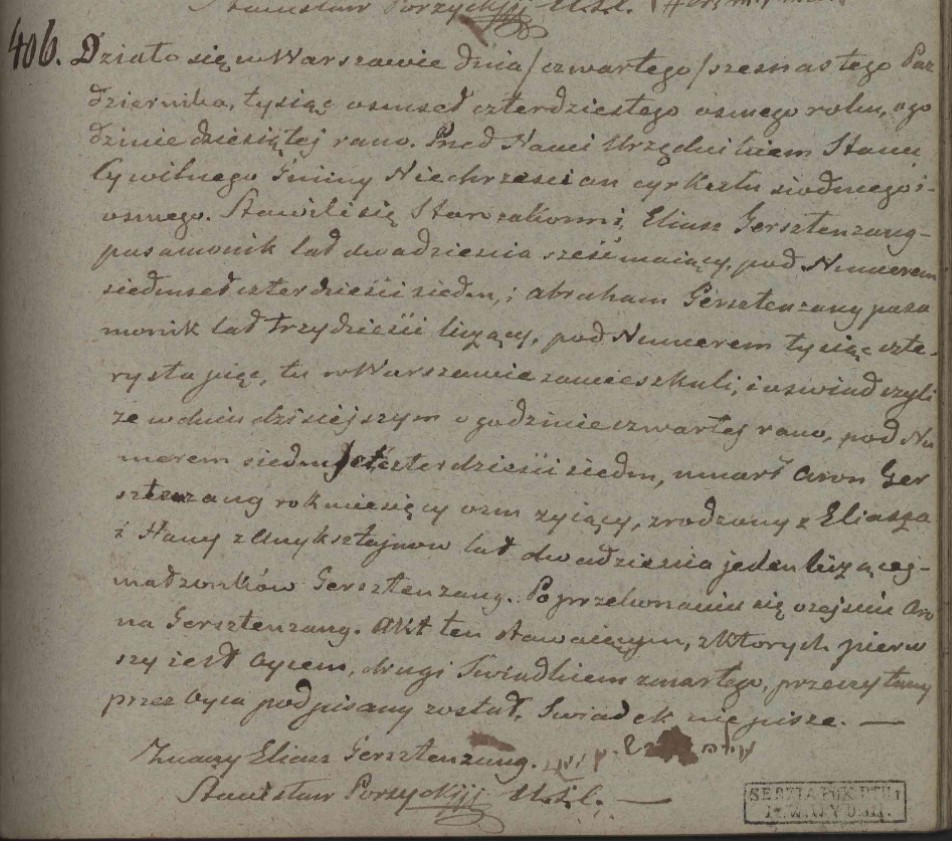 Stanisław Porzyckiji U.S.C.
406. Działo się w Warszawie dnia /czwartego/ szesnastego Paź
dziernika, tysiąc osmset czterdziestego osmego roku, o go
dzinie dziesiątej rano. Przed Nami Urzędnikiem Stanu
Cywilnego Gminy Niechrzescian cyrkułu siodmego i
osmego. Stawili się Starozakonni, Eliasz Gersztenzang
pasamonik lat dwadziescia sześć maiący, pod Numerem
siedmset czterdzieści siedm, i Abraham Gersztenzang pasa
monik lat trzydzieści liczący, pod Numerem tysiąc czte-
rysta pięć, tu w Warszawie zamieszkali, i oswiadczyli
ze w dniu dzisiejszym o godzinie czwartej rano, pod Nu
merem siedmset czterdzieści siedm, umarł Aron Ger
sztenzang rok miesięcy osm zyiący, zrodzony z Eliasza
i Hany z Anyksztajnow lat dwadziescia jeden liczącej
małzonków Gersztenzang. Po przekonaniu się o zejsciu Aro
na Gersztenzang. Akt ten stawaiącym, z ktorych pierw
szy iest Oycem, drugi Swiadkiem zmarłego, przeczytany
przez Oyca podpisany został, Swiadek nie pisze. —
Znaczy Eliasz Gersztenzang.
Stanisław Porzyckiji U.S.C. —